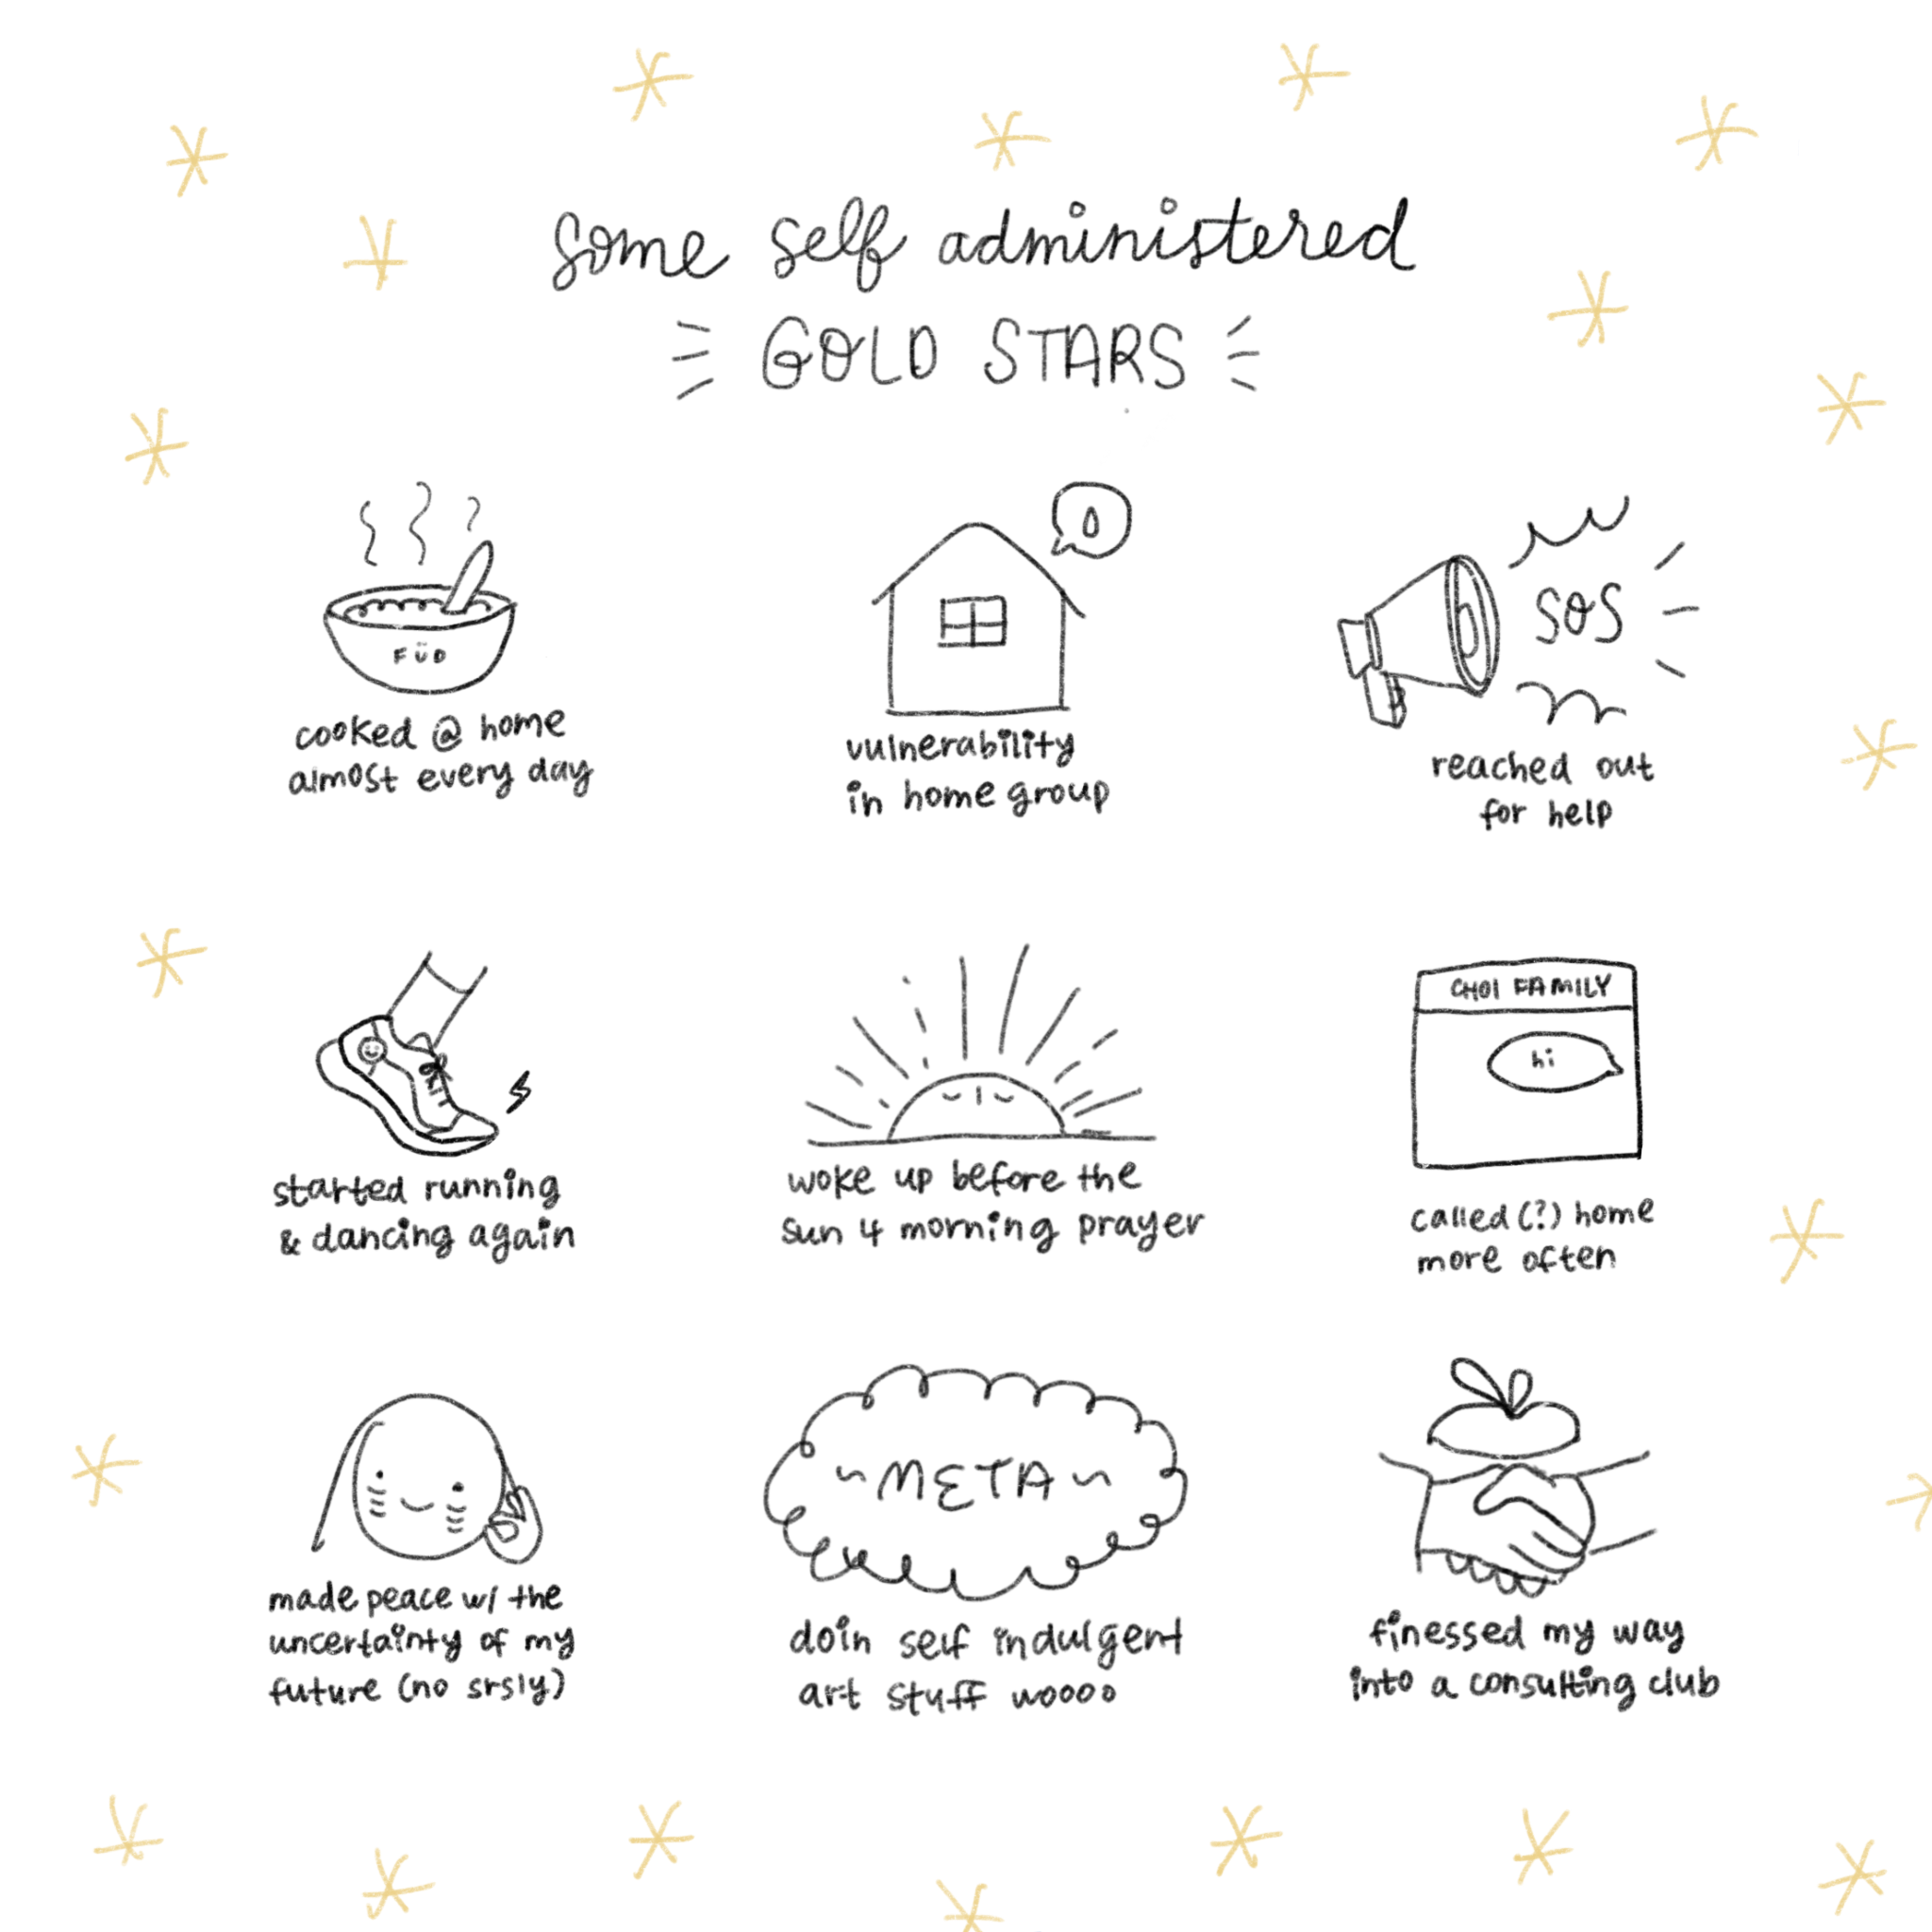 some self administered
GOLD STARS
FÜD
cooked @ home
almost every day
vulnerability
in home group
SOS
reached out
for help
started running
& dancing again
woke up before the
sun 4 morning prayer
CHOI FAMILY
hi
called (?) home
more often
made peace w/ the
uncertainty of my
future (no srsly)
~META~
doin self indulgent
art stuff woooo
finessed my way
into a consulting club